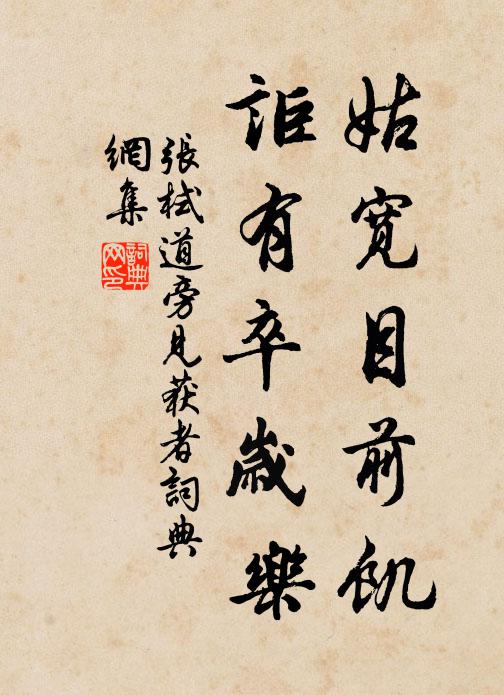 姑寬目前飢
詎有卒歲樂
張栻道旁見获者詞典
網集
詞典
网印